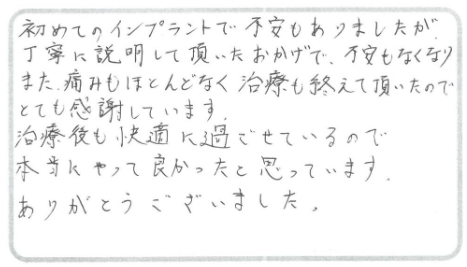 初めてのインプラントで不安もありましたが
丁寧に説明して頂いたおかげで、不安もなくなり
また、痛みもほとんどなく治療も終えて頂いたので
とても感謝しています。
治療後も快適に過ごせているので
本当にやって良かったと思っています。
ありがとうございました。